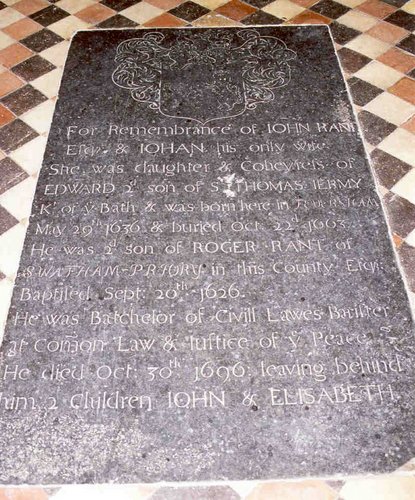 For Remembrance of IOHN RANT
Esqr. & IOHAN his only wife
She was daughter & Coheyress of
EDWARD 2d son of Sr THOMAS IERMY
Kt of ye Bath & was born here in
May 29th 1636 & buried Oct: 22d 1663
He was 2d son of ROGER RANT of
SWAFHAM-PRIORY in this County Esqr:
Baptised Sept: 20th 1626.
He was Batchelor of Civill Lawes Barister
at Comon Law & Iustice of ye Peace
He died Oct: 30th 1696: leaving behind
him 2 Children IOHN & ELISABETH.